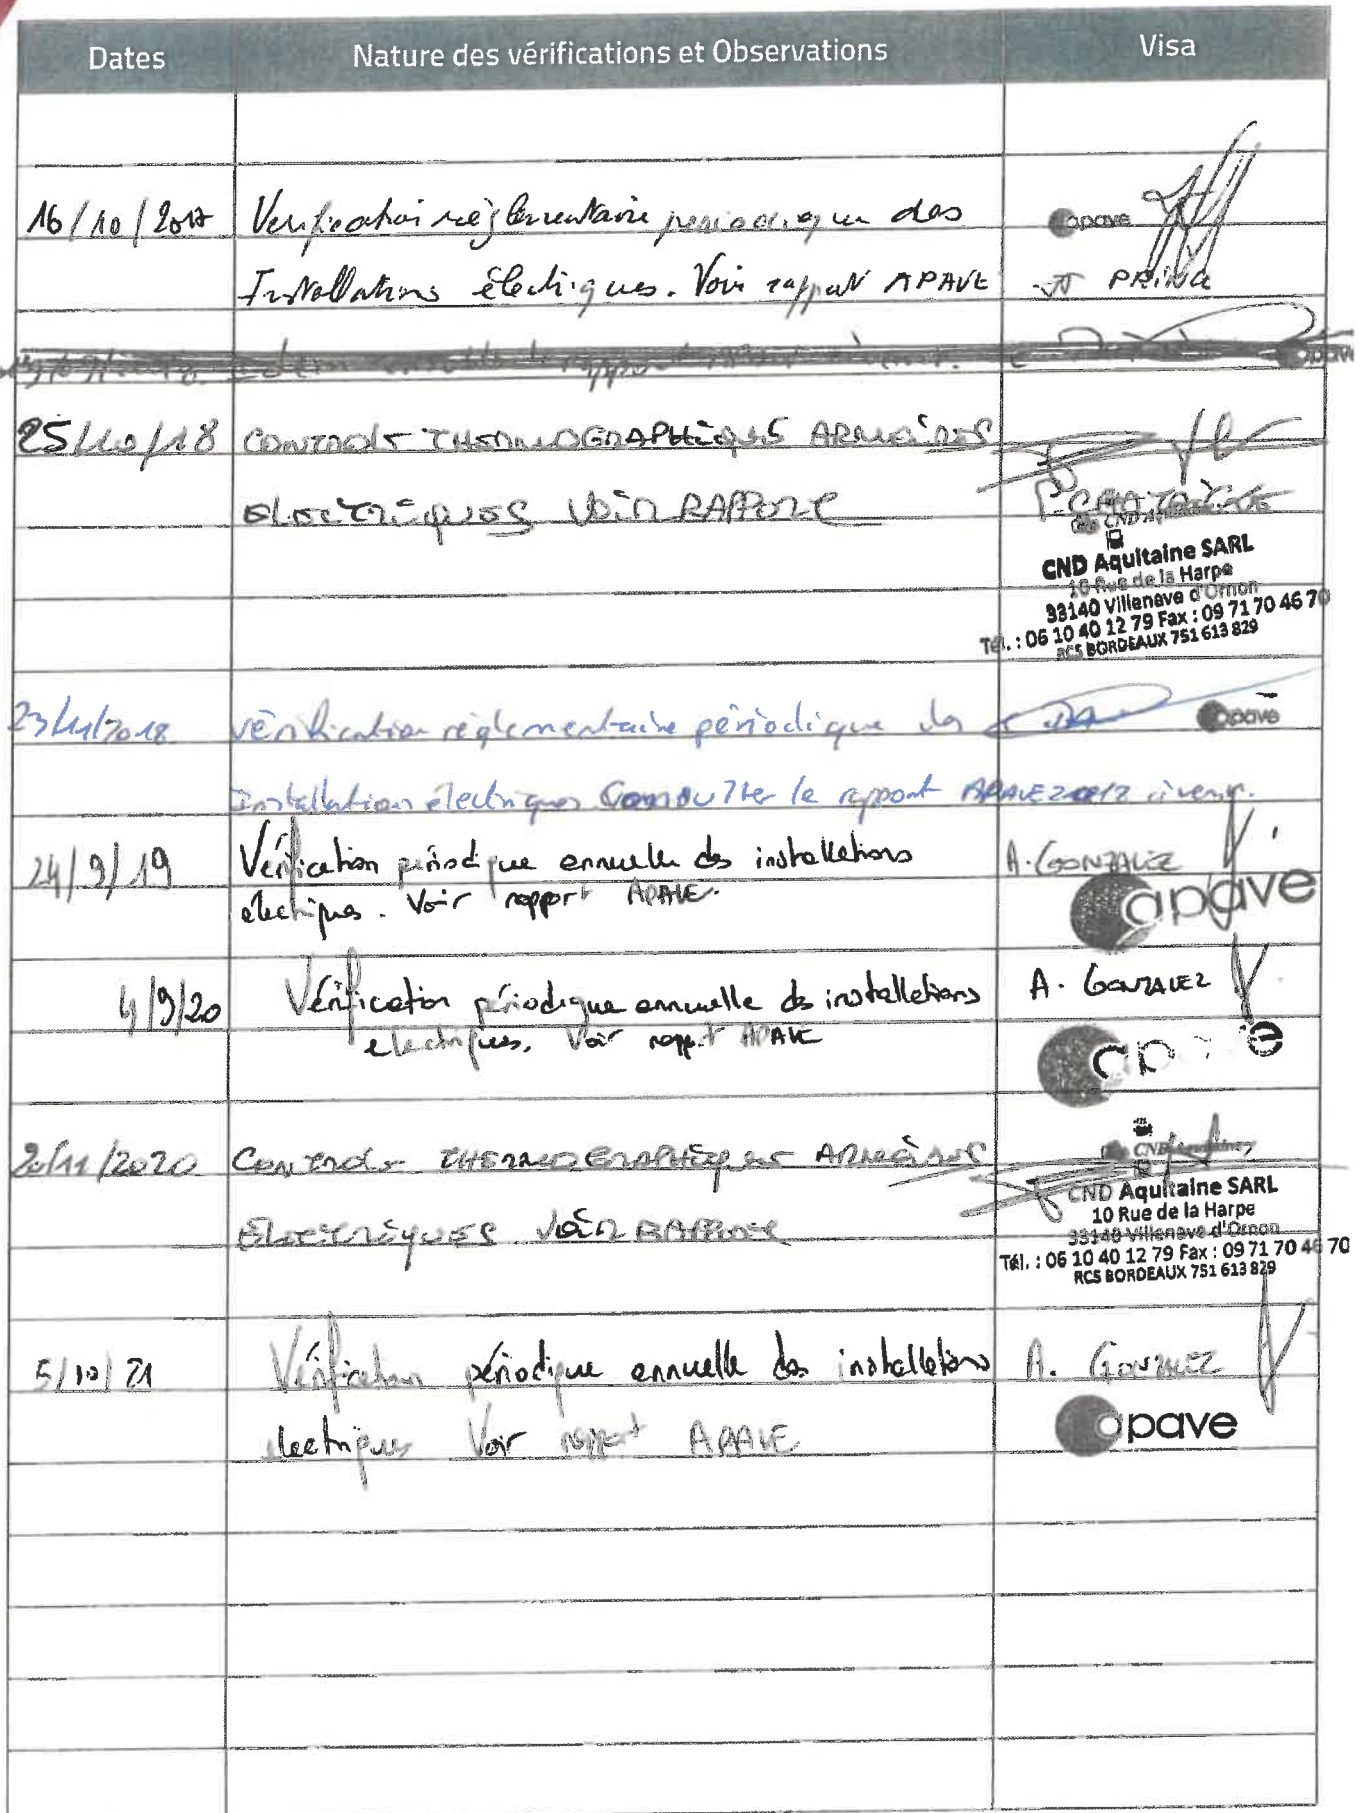 Dates Nature des vérifications et Observations Visa
16/10/2017 Verification règlementaire periodique des apave
Installations électriques. Voir rapport APAVE JJ PRINCE
apave
25/10/18 CONTROLE THERMOGRAPHIQUES ARMOIRES
ELECTRIQUES VOIR RAPPORT
CND Aquitaine SARL
10 Rue de la Harpe
33140 Villenave d'Ornon
Tél. : 06 10 40 12 79 Fax : 09 71 70 46 70
RCS BORDEAUX 751 613 829
23/11/2018 vérification règlementaire périodique des apave
Installation électriques Consulter le rapport APAVE 2018 à venir.
24/9/19 Vérification périodique annuelle des installations A. GONZALEZ
electriques. Voir rapport APAVE. apave
4/9/20 Vérification périodique annuelle des installations A. GONZALEZ
electriques. Voir rapport APAVE
20/11/2020 CONTROLE THERMOGRAPHIQUES ARMOIRES
ELECTRIQUES VOIR RAPPORT
CND Aquitaine SARL
10 Rue de la Harpe
33140 Villenave d'Ornon
Tél. : 06 10 40 12 79 Fax : 09 71 70 46 70
RCS BORDEAUX 751 613 829
5/10/21 Vérification périodique annuelle des installations A. GONZALEZ
electriques Voir rapport APAVE apave